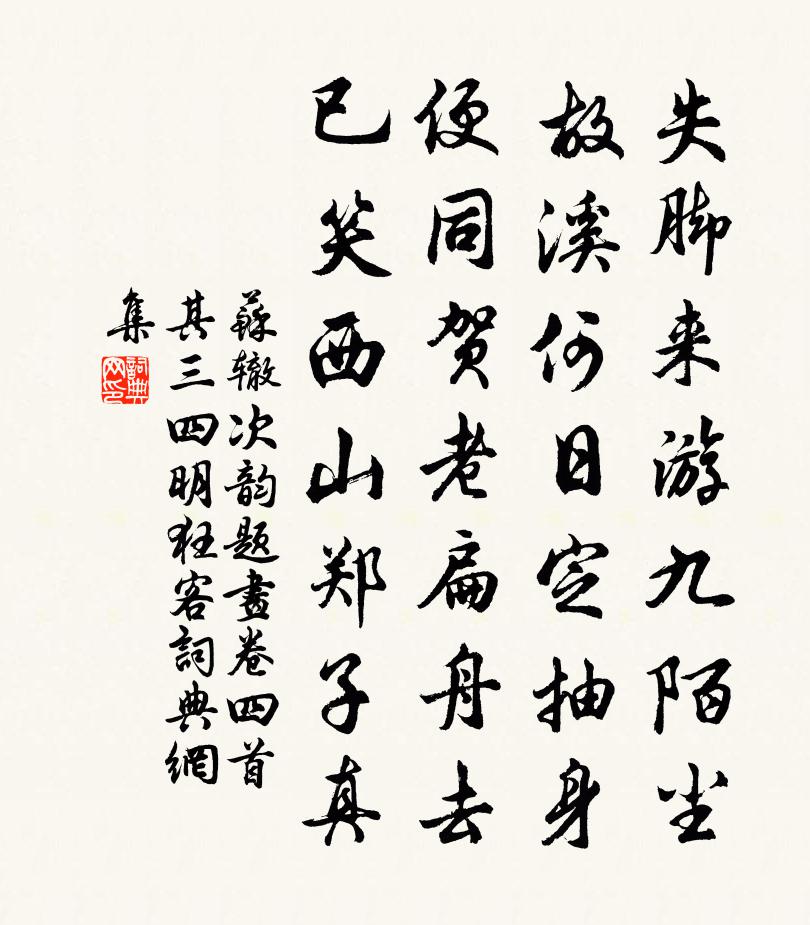 失脚来游九陌尘
故溪何日定抽身
便同贺老扁舟去
已笑西山郑子真
蘇辙次韵题畫卷四首
其三四明狂客詞典網
集
詞典
网印